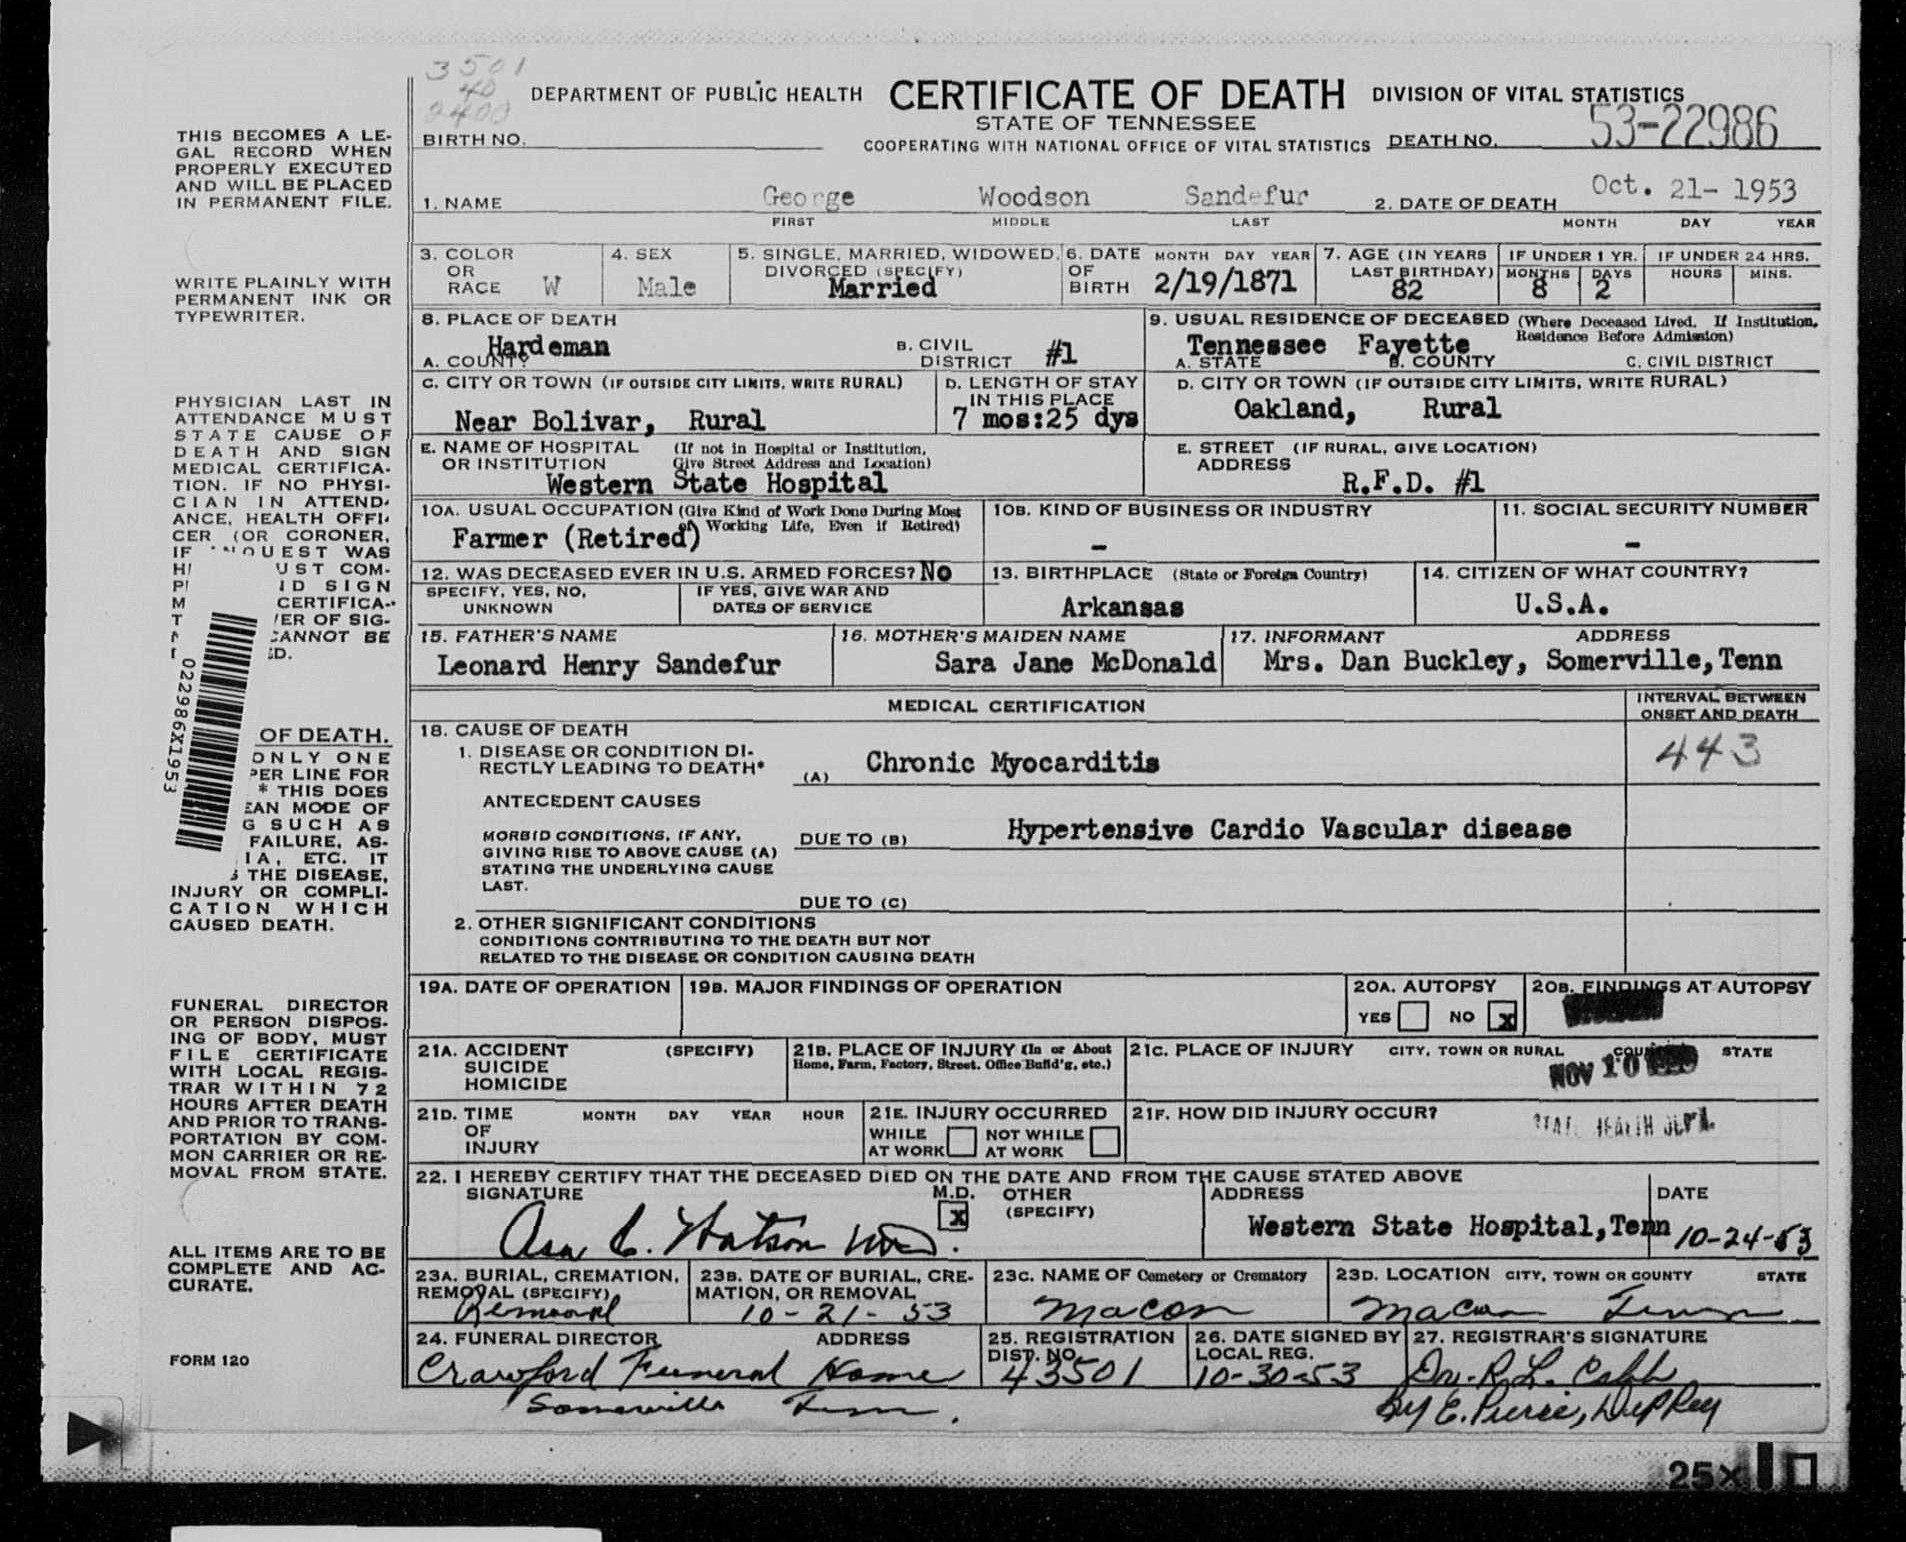 3501
40
2400
DEPARTMENT OF PUBLIC HEALTH CERTIFICATE OF DEATH DIVISION OF VITAL STATISTICS
STATE OF TENNESSEE
COOPERATING WITH NATIONAL OFFICE OF VITAL STATISTICS
BIRTH NO.
DEATH NO. 53-22986
1. NAME George Woodson Sandefur
FIRST MIDDLE LAST
2. DATE OF DEATH Oct. 21- 1953
MONTH DAY YEAR
3. COLOR OR RACE W
4. SEX Male
5. SINGLE, MARRIED, WIDOWED, DIVORCED (SPECIFY) Married
6. DATE OF BIRTH MONTH DAY YEAR 2/19/1871
7. AGE (IN YEARS LAST BIRTHDAY) 82
IF UNDER 1 YR. MONTHS 8 DAYS 2
IF UNDER 24 HRS. HOURS MINS.
8. PLACE OF DEATH
A. COUNTY Hardeman
B. CIVIL DISTRICT #1
9. USUAL RESIDENCE OF DECEASED (Where Deceased Lived. If Institution, Residence Before Admission)
Tennessee Fayette
A. STATE B. COUNTY C. CIVIL DISTRICT
C. CITY OR TOWN (IF OUTSIDE CITY LIMITS, WRITE RURAL)
Near Bolivar, Rural
D. LENGTH OF STAY IN THIS PLACE
7 mos:25 dys
D. CITY OR TOWN (IF OUTSIDE CITY LIMITS, WRITE RURAL)
Oakland, Rural
E. NAME OF HOSPITAL OR INSTITUTION (If not in Hospital or Institution, Give Street Address and Location)
Western State Hospital
E. STREET ADDRESS (IF RURAL, GIVE LOCATION)
R.F.D. #1
10A. USUAL OCCUPATION (Give Kind of Work Done During Most of Working Life, Even if Retired)
Farmer (Retired)
10B. KIND OF BUSINESS OR INDUSTRY
-
11. SOCIAL SECURITY NUMBER
-
12. WAS DECEASED EVER IN U.S. ARMED FORCES? No
SPECIFY, YES, NO, UNKNOWN
IF YES, GIVE WAR AND DATES OF SERVICE
13. BIRTHPLACE (State or Foreign Country)
Arkansas
14. CITIZEN OF WHAT COUNTRY?
U.S.A.
15. FATHER'S NAME
Leonard Henry Sandefur
16. MOTHER'S MAIDEN NAME
Sara Jane McDonald
17. INFORMANT ADDRESS
Mrs. Dan Buckley, Somerville,Tenn
MEDICAL CERTIFICATION
INTERVAL BETWEEN ONSET AND DEATH
443
18. CAUSE OF DEATH
1. DISEASE OR CONDITION DIRECTLY LEADING TO DEATH* (A) Chronic Myocarditis
ANTECEDENT CAUSES
MORBID CONDITIONS, IF ANY, GIVING RISE TO ABOVE CAUSE (A) STATING THE UNDERLYING CAUSE LAST.
DUE TO (B) Hypertensive Cardio Vascular disease
DUE TO (C)
2. OTHER SIGNIFICANT CONDITIONS
CONDITIONS CONTRIBUTING TO THE DEATH BUT NOT
RELATED TO THE DISEASE OR CONDITION CAUSING DEATH
19A. DATE OF OPERATION
19B. MAJOR FINDINGS OF OPERATION
20A. AUTOPSY YES NO x
20B. FINDINGS AT AUTOPSY
21A. ACCIDENT SUICIDE HOMICIDE (SPECIFY)
21B. PLACE OF INJURY (In or About Home, Farm, Factory, Street, Office Build'g, etc.)
21C. PLACE OF INJURY CITY, TOWN OR RURAL COUNTY STATE
NOV 10
21D. TIME OF INJURY MONTH DAY YEAR HOUR
21E. INJURY OCCURRED
WHILE AT WORK NOT WHILE AT WORK
21F. HOW DID INJURY OCCUR?
STATE HEALTH DEPT.
22. I HEREBY CERTIFY THAT THE DECEASED DIED ON THE DATE AND FROM THE CAUSE STATED ABOVE
SIGNATURE M.D. x OTHER (SPECIFY)
Asa C. Watson M.D.
ADDRESS
Western State Hospital,Tenn
DATE
10-24-53
23A. BURIAL, CREMATION, REMOVAL (SPECIFY)
Removal
23B. DATE OF BURIAL, CREMATION, OR REMOVAL
10-21-53
23C. NAME OF Cemetery or Crematory
Macon
23D. LOCATION CITY, TOWN OR COUNTY STATE
Macon Tenn.
24. FUNERAL DIRECTOR ADDRESS
Crawford Funeral Home
Somerville Tenn.
25. REGISTRATION DIST. NO.
43501
26. DATE SIGNED BY LOCAL REG.
10-30-53
27. REGISTRAR'S SIGNATURE
Dr. R. L. Cobb
By E. Pierce, Dep Reg
THIS BECOMES A LE-
GAL RECORD WHEN
PROPERLY EXECUTED
AND WILL BE PLACED
IN PERMANENT FILE.
WRITE PLAINLY WITH
PERMANENT INK OR
TYPEWRITER.
PHYSICIAN LAST IN
ATTENDANCE MUST
STATE CAUSE OF
DEATH AND SIGN
MEDICAL CERTIFICA-
TION. IF NO PHYSI-
CIAN IN ATTEND-
ANCE, HEALTH OFFI-
CER (OR CORONER,
IF INQUEST WAS
UST COM-
SIGN
CERTIFICA-
ER OF SIG-
CANNOT BE
D.
022986X1953
OF DEATH.
ONLY ONE
PER LINE FOR
* THIS DOES
EAN MODE OF
G SUCH AS
FAILURE, AS-
IA, ETC. IT
S THE DISEASE,
INJURY OR COMPLI-
CATION WHICH
CAUSED DEATH.
FUNERAL DIRECTOR
OR PERSON DISPOS-
ING OF BODY, MUST
FILE CERTIFICATE
WITH LOCAL REGIS-
TRAR WITHIN 72
HOURS AFTER DEATH
AND PRIOR TO TRANS-
PORTATION BY COM-
MON CARRIER OR RE-
MOVAL FROM STATE.
ALL ITEMS ARE TO BE
COMPLETE AND AC-
CURATE.
FORM 120
25X